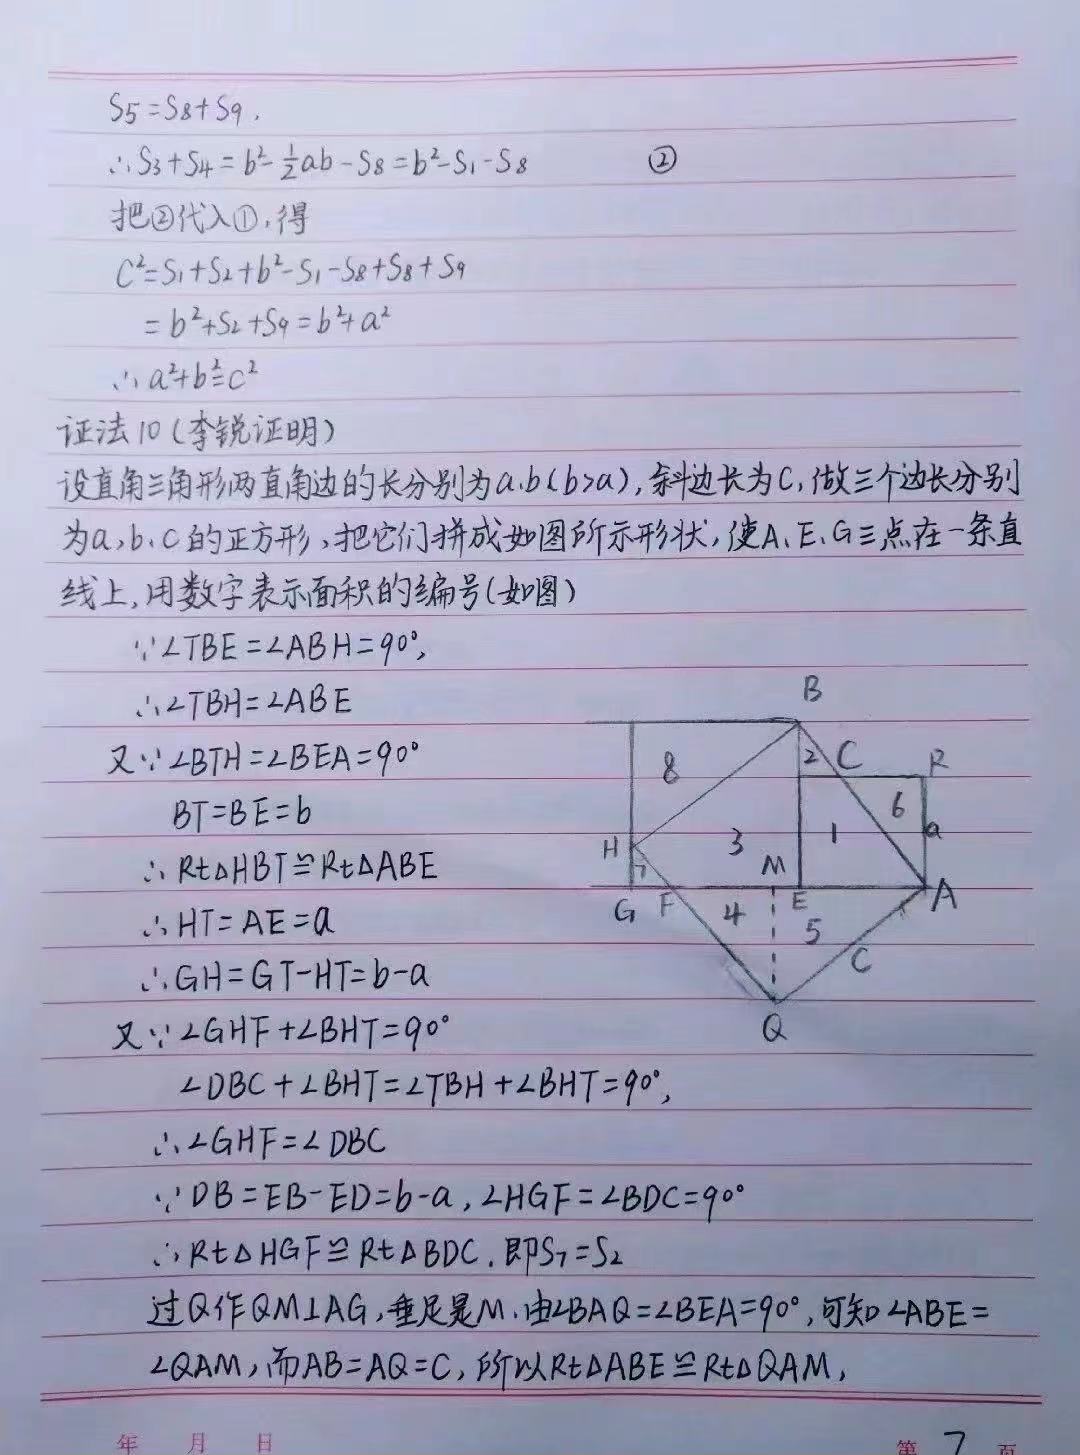 S5=S8+S9.
∴S3+S4=b²-½ab-S8=b²-S1-S8 ②
把②代入①,得
C²=S1+S2+b²-S1-S8+S8+S9
=b²+S2+S9=b²+a²
∴a²+b²=c²
证法10(李锐证明)
设直角三角形两直角边的长分别为a.b(b>a),斜边长为C,做三个边长分别
为a,b、C的正方形,把它们拼成如图所示形状,使A、E、G三点在一条直
线上,用数字表示面积的编号(如图)
∵∠TBE=∠ABH=90°,
∴∠TBH=∠ABE
又∵∠BTH=∠BEA=90°
BT=BE=b
∴Rt△HBT≌Rt△ABE
∴HT=AE=a
∴GH=GT-HT=b-a
又∵∠GHF+∠BHT=90°
∠DBC+∠BHT=∠TBH+∠BHT=90°,
∴∠GHF=∠DBC
∵DB=EB-ED=b-a,∠HGF=∠BDC=90°
∴Rt△HGF≌Rt△BDC.即S7=S2
过Q作QM⊥AG,垂足是M.由∠BAQ=∠BEA=90°,可知∠ABE=
∠QAM,而AB=AQ=C,所以Rt△ABE≌Rt△QAM,
B
8 2 C R
6
H 3 1 a
7 M
G F 4 E A
5
C
Q
年 月 日 第 7 页